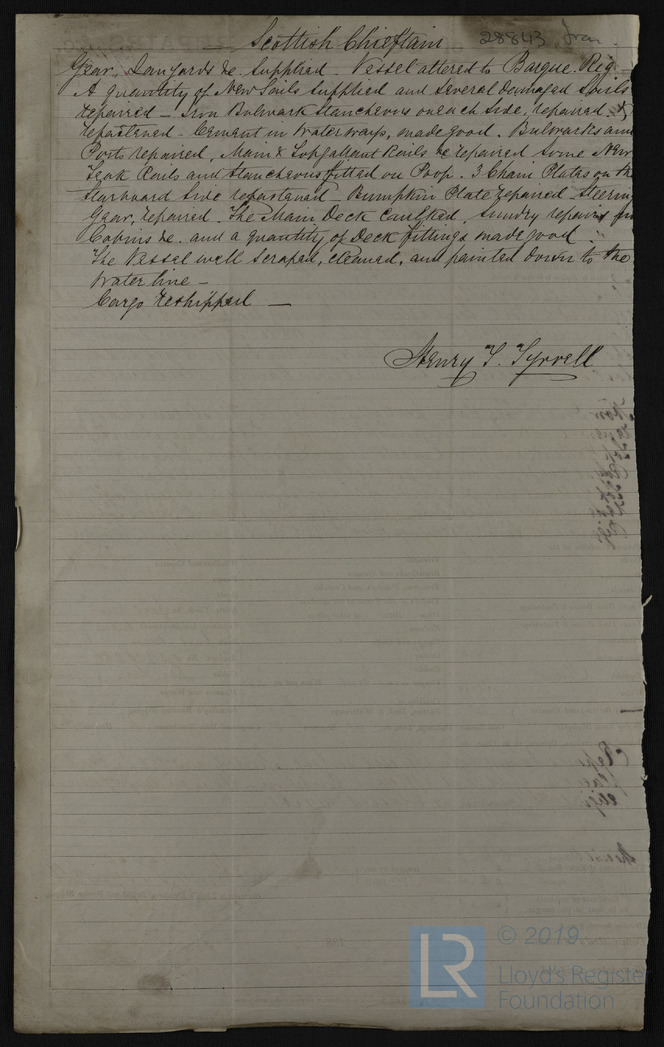 Scottish Chieftain 28843 Iron
Gear, Lanyards &c. Supplied _ Vessel altered to Barque Rig _
A quantity of New Sails supplied and several damaged Sails
repaired _ Iron Bulwark Stancheons on each Side, repaired &
refastened _ Cement in Waterways, made good. Bulwarks and
Ports repaired, Main & Topgallant Rails &c repaired some New
Teak Rails and Stancheons fitted on Poop. 3 Chain Plates on the
Starboard Side refastened _ Bumpkin Plate repaired _ Steering
Gear, repaired _ The Main Deck Caulked, Sundry repairs in
Cabins &c. and a quantity of Deck fittings made good _
The Vessel well Scraped, cleaned, and painted down to the
Water line _
Cargo reshipped _
Henry T. Tyrrell
LR
© 2019
Lloyd's Register
Foundation